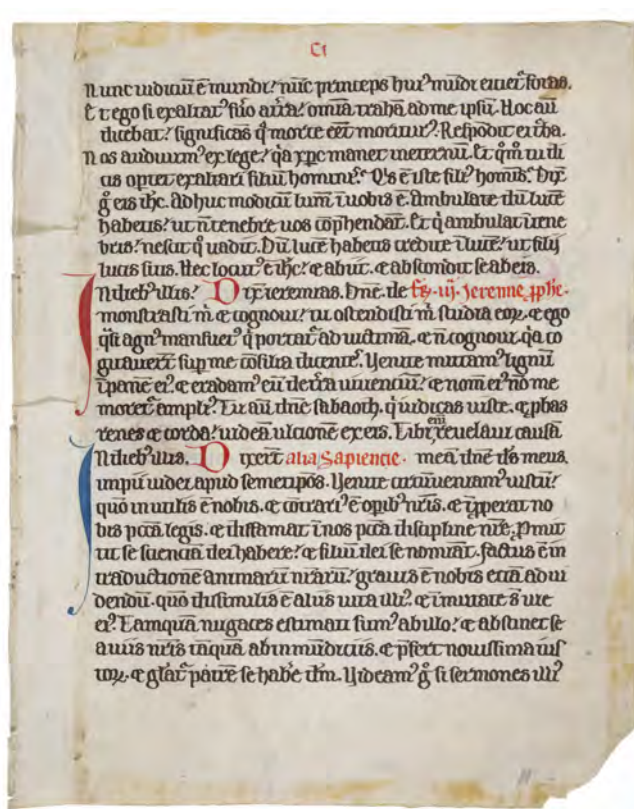 Ci
Nunc iudiciū ē mundi: nūc princeps huiꝰ mūdi eiciet̄ foras.
Et ego si exaltatꝰ fuo a t̄ra: omīa trahā ad me ipsū. Hoc aū
dicebat: significās q̄ morte eēt moriturꝰ. Respōdit ei t̄ba.
Nos audiuimꝰ ex lege: q̄a xp̄c manet in eternū. Et qͦm tu di
cis oportet exaltari filiū hominis. Qͥs ē iste filiꝰ homīs. Dix̄
gͦ eis ih̄c. Adhuc modicū lum̄ ī uobis ē. Ambulate dū lucē
habetis: ut n̄ tenebre uos cōp̄hendāt. Et qͥ ambulat ī tene
bris: nescit qͦ uadit. Dū lucē habetis credite ī lucē: ut filij
lucis sitis. Hec locutꝰ ē ih̄c: ⁊ abiit. ⁊ abscondit se ab eis.
In dieb̄ illis: Dixit ieremias. Dn̄e. de fr̄. iij. Jeremie ꝓph̄e.
monstrasti m̄ ⁊ cognoui: tu ostendisti m̄ studia eoꝝ. ⁊ ego
q̄si agnꝰ mansuetꝰ qͥ portat̄ ad uictimā. ⁊ n̄ cognoui. q̄a co
gitauert̄ sup me cōsilia dicentes. Uenite mittamꝰ lignū
ī panē eiꝰ ⁊ eradamꝰ eū de t̄ra uiuenciū: ⁊ nom̄ eiꝰ nō me
moret̄ ampliꝰ. Tu aū dn̄e sabaoth. qͥ iudicas iuste. ⁊ ꝓbas
renes ⁊ corda: uideā ulcionē ex eis. Tibi eni reuelaui causā
In dieb̄ illis. Dixert̄ alia Sapiencie. meā dn̄e ds̄ meus.
impii uidet̄ apud semetipōs. Uenite circūueniamꝰ iustū:
quō inutilis ē nobis. ⁊ cōtrariꝰ ē opib̄ nr̄is. ⁊ īpperat no
bis pc̄ca legis. ⁊ diffamat ī nos pc̄ca discipline nr̄e. Pmit
tit se scienciā dei habere: ⁊ filiū dei se nomīat. factus ē in
traductionē animarū nr̄arū: grauis ē nobis etiā ad ui
dendū. quō dissimilis ē aliis uita illiꝰ ⁊ īmutate s̄ uie
eiꝰ Tamquā nugaces estimati sumꝰ ab illo: ⁊ abstinet se
a uiis nr̄is tāquā ab inmūdiciis. ⁊ p̄fert nouissima ius
toꝝ. ⁊ gl̄at̄ patrē se hab̄e dm̄. Uideamꝰ gͦ si sermones illiꝰ